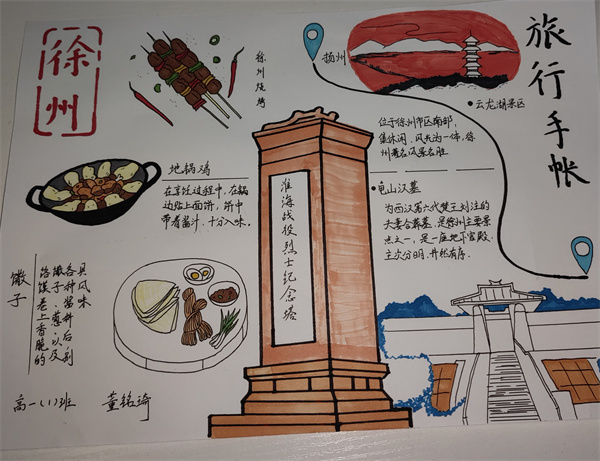 徐州
徐州烧烤
扬州
旅行手帐
云龙湖景区
位于徐州市区南部,
集休闲、风光为一体,徐
州著名风景名胜
地锅鸡
在烹饪过程中,在锅
边贴上面饼,饼中
带着酱汁,十分入味。
龟山汉墓
为西汉第六代楚王刘注的
夫妻合葬墓,是徐州主要景
点之一,是一座地下宫殿,
主次分明,井然有序。
淮海战役烈士纪念塔
馓子
烙馍卷上香脆的
馓子、葱以及
各种酱料后别
具风味
高一(1)班
董铭琦